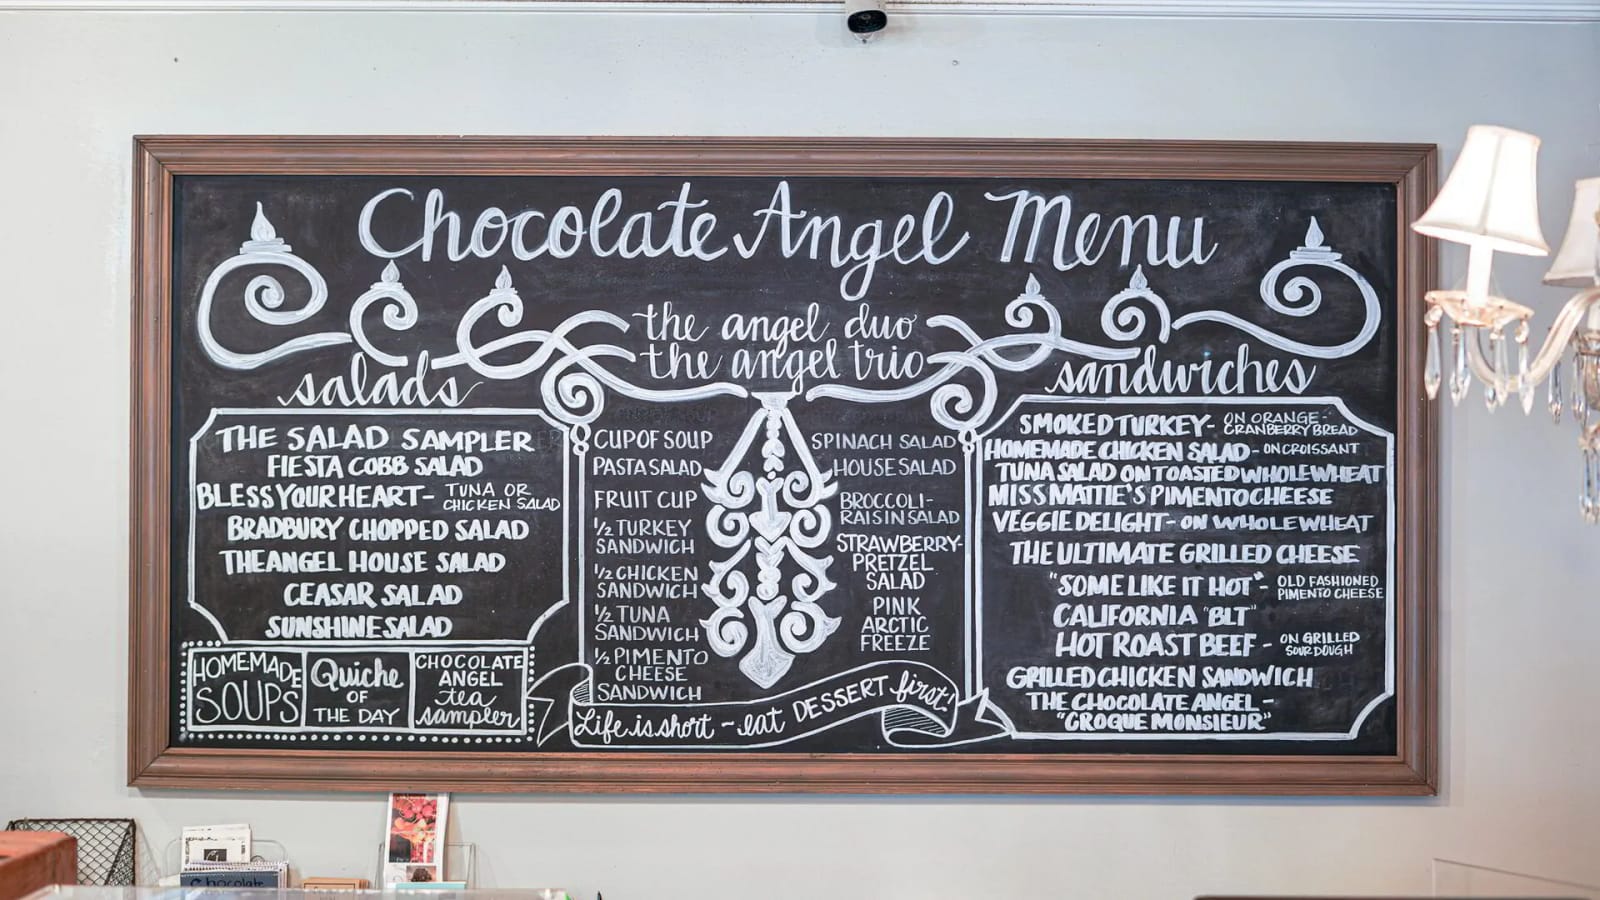 Chocolate Angel Menu
the angel duo
the angel trio
salads
THE SALAD SAMPLER
FIESTA COBB SALAD
BLESS YOUR HEART - TUNA OR
CHICKEN SALAD
BRADBURY CHOPPED SALAD
THE ANGEL HOUSE SALAD
CEASAR SALAD
SUNSHINE SALAD
HOMEMADE
SOUPS
Quiche
OF
THE DAY
CHOCOLATE
ANGEL
tea
sampler
CUP OF SOUP
PASTA SALAD
FRUIT CUP
1/2 TURKEY
SANDWICH
1/2 CHICKEN
SANDWICH
1/2 TUNA
SANDWICH
1/2 PIMENTO
CHEESE
SANDWICH
SPINACH SALAD
HOUSE SALAD
BROCCOLI-
RAISIN SALAD
STRAWBERRY-
PRETZEL
SALAD
PINK
ARCTIC
FREEZE
Life is short - eat DESSERT first!
sandwiches
SMOKED TURKEY - ON ORANGE-
CRANBERRY BREAD
HOMEMADE CHICKEN SALAD - ON CROISSANT
TUNA SALAD ON TOASTED WHOLE WHEAT
MISS MATTIE'S PIMENTO CHEESE
VEGGIE DELIGHT - ON WHOLE WHEAT
THE ULTIMATE GRILLED CHEESE
"SOME LIKE IT HOT" - OLD FASHIONED
PIMENTO CHEESE
CALIFORNIA "BLT"
HOT ROAST BEEF - ON GRILLED
SOURDOUGH
GRILLED CHICKEN SANDWICH
THE CHOCOLATE ANGEL -
"CROQUE MONSIEUR"
Chocolate